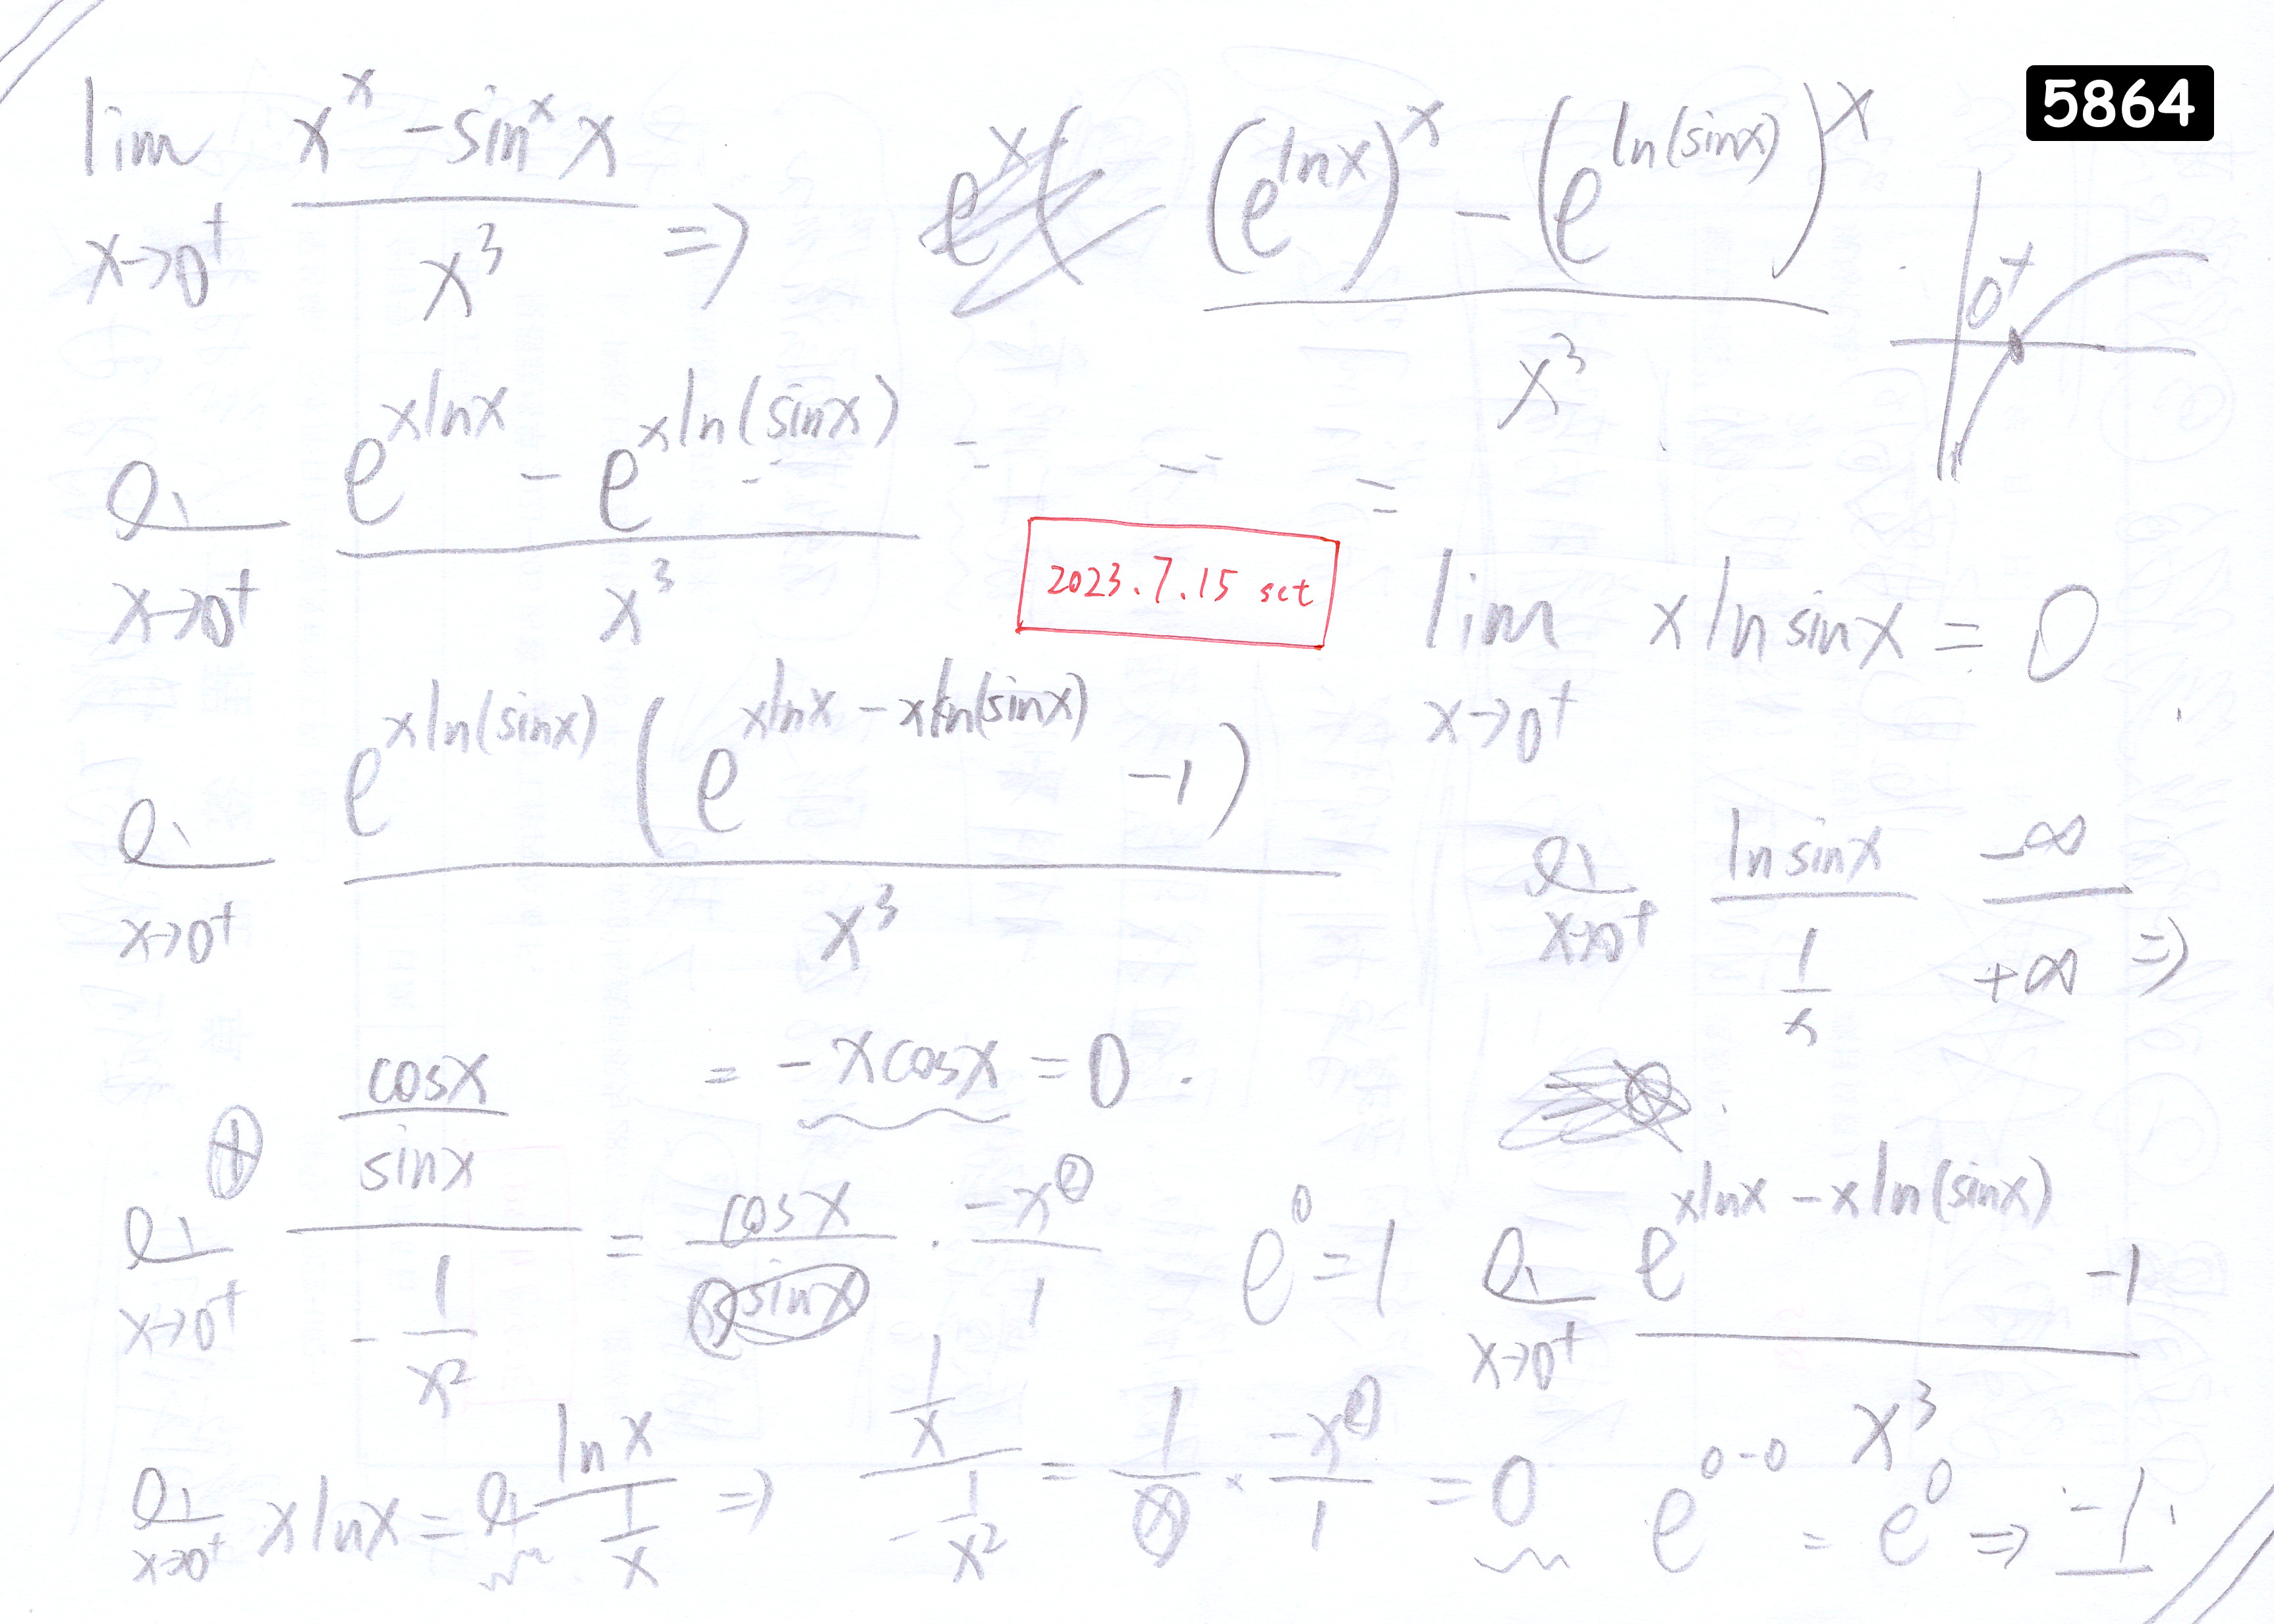 5864
lim x→0⁺ (x^x - sin^x x) / x³ ⇒ ((e^(lnx))^x - (e^(ln(sinx)))^x) / x³
0⁺
x→0⁺ (e^(xlnx) - e^(xln(sinx))) / x³ =
2023.7.15 sct
lim x→0⁺ xlnsinx = 0
x→0⁺ e^(xln(sinx)) (e^(xlnx - xln(sinx)) - 1) / x³
x→0⁺ lnsinx / (1/x) -∞ / +∞ ⇒
= -xcosx = 0.
x→0⁺ (cosx / sinx) / (-1/x²) = cosx / sinx · -x² / 1
e⁰ = 1
x→0⁺ (e^(xlnx - xln(sinx)) - 1) / x³
x→0⁺ xlnx = lnx / (1/x) ⇒ (1/x) / (-1/x²) = 1/x · -x²/1 = 0
e^(0-0) = e⁰ ⇒ -1